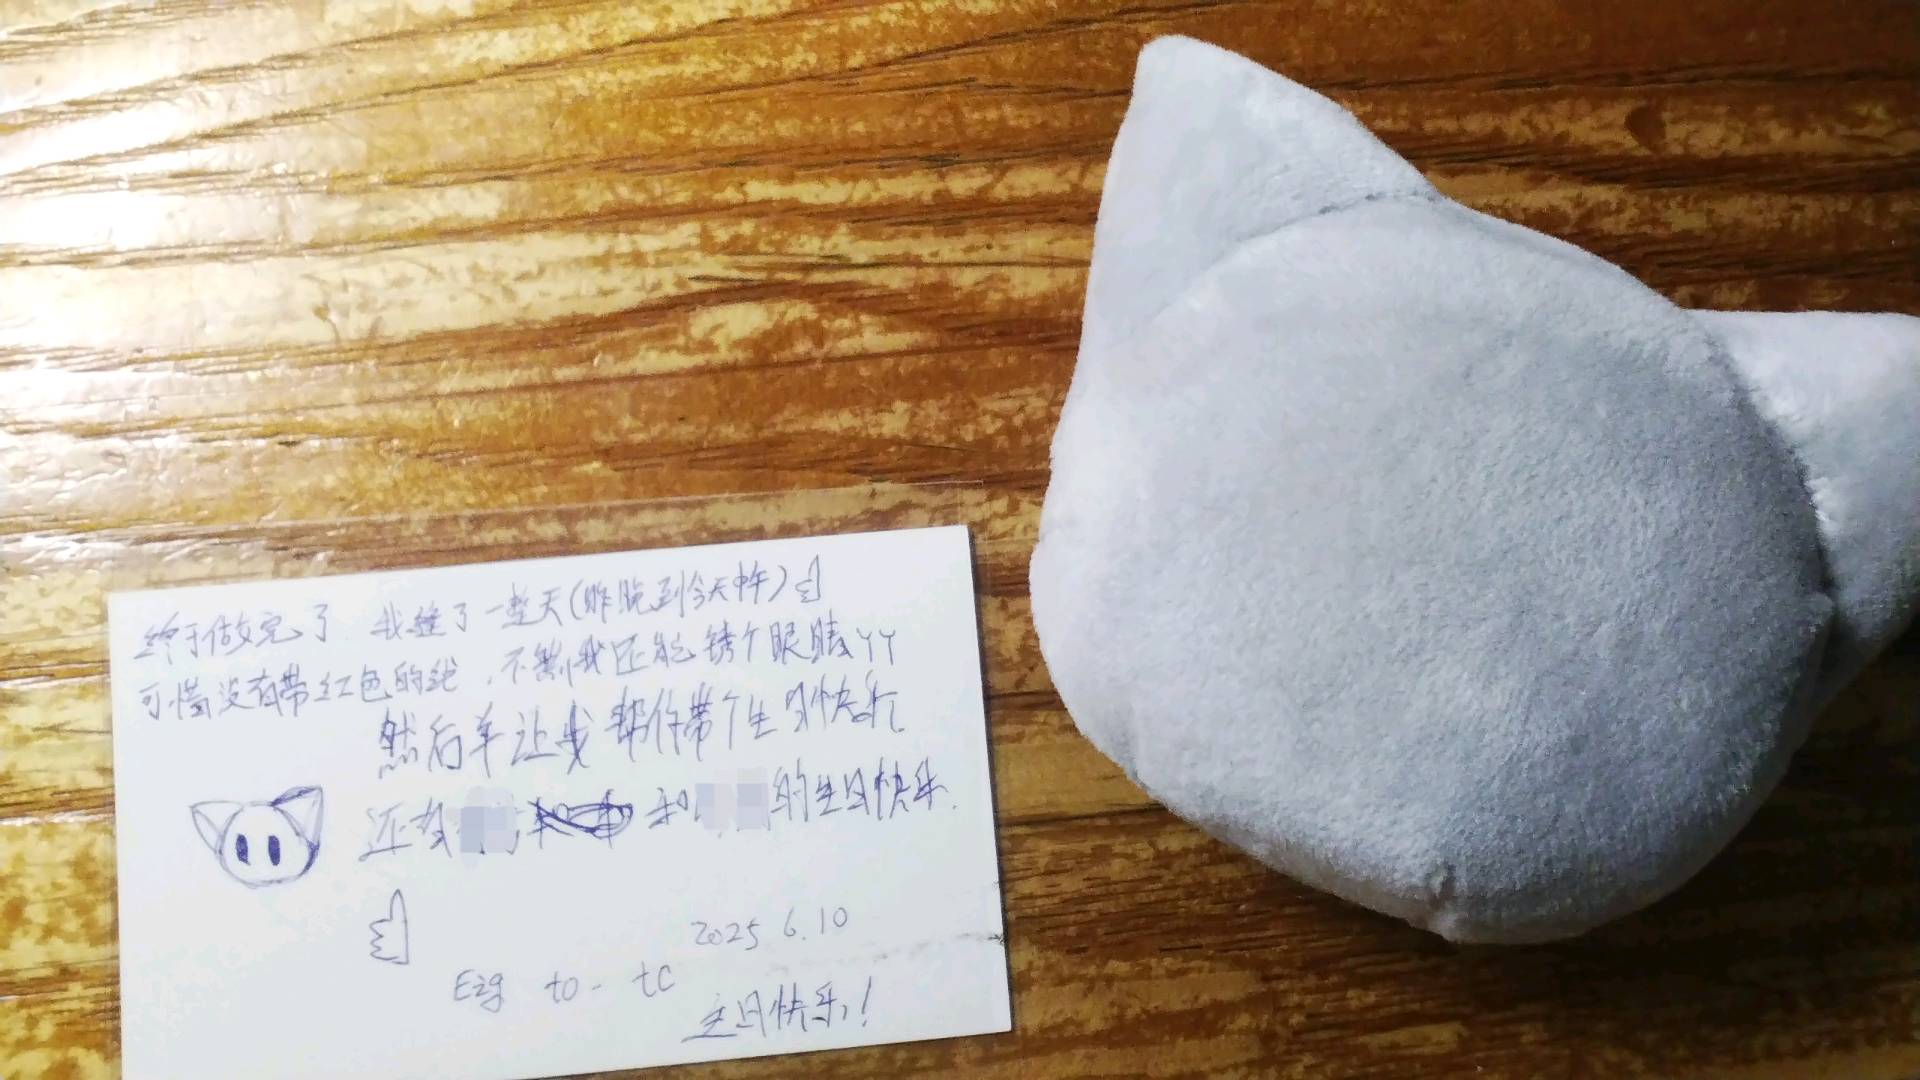 终于做完了 我缝了一整天(昨晚到今天中午)
可惜没有带红色的线,不然我还能锈个眼睛丫丫
然后羊让我帮你带个生日快乐
还有 和 的生日快乐.
2025 6.10
Ezg to- tc
生日快乐!